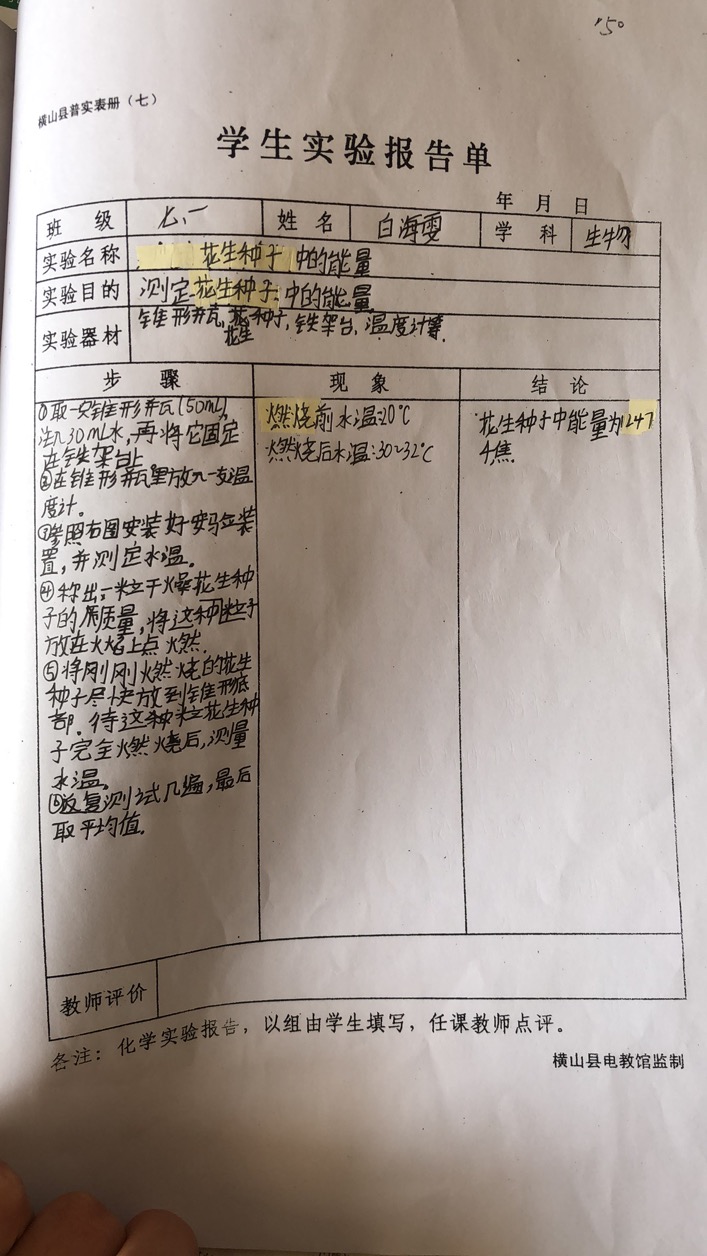 150
横山县普实表册（七）
学生实验报告单
年 月 日
班 级 七.一 姓 名 白海雯 学 科 生物
实验名称 花生种子中的能量
实验目的 测定花生种子中的能量
实验器材 锥形并瓦,花种子,铁架台,温度计等.
花生
步 骤 现 象 结 论
①取一只锥形并瓦(50mL),
注入30mL水,再将它固定
在铁架台上
②在锥形并瓦里放入一支温
度计。
③参照右图安装好安装
置,并测定水温。
④称出一粒干燥花生种
子的质量,将这种粒子
放在火焰上点燃.
⑤将刚刚燃烧的花生
种子尽快放到锥形底
部.待这种粒花生种
子完全燃烧后,测量
水温。
⑥反复测试几遍,最后
取平均值.
燃烧前水温:20℃
燃烧后水温:30~32℃
花生种子中能量为1247
4焦.
教师评价
各注：化学实验报告，以组由学生填写，任课教师点评。
横山县电教馆监制